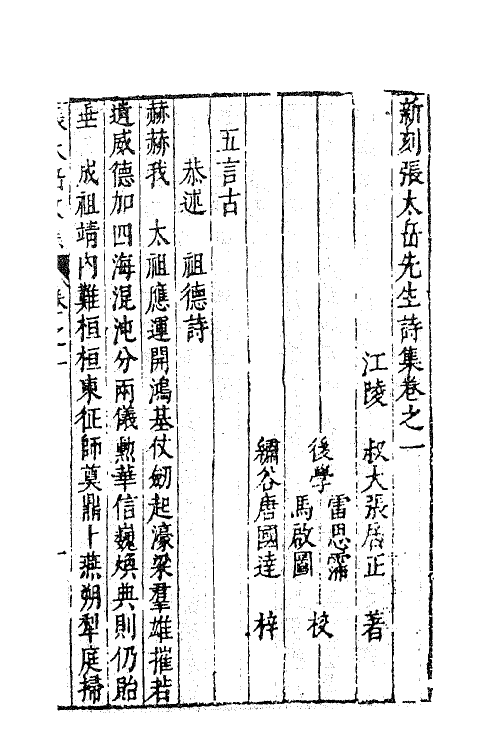 新刻張太岳先生詩集卷之一
江陵　叔大張居正　著
後學　雷思霈　馬啟圖　校
繡谷唐國達　梓
五言古
恭述　祖德詩
赫赫我　太祖應運開鴻基仗劒起濠梁羣雄摧若
遺威德加四海混沌分兩儀勲華信巍煥典則仍貽
垂　成祖靖內難桓桓東征師奠鼎卜燕朔犁庭掃
卷之一
一